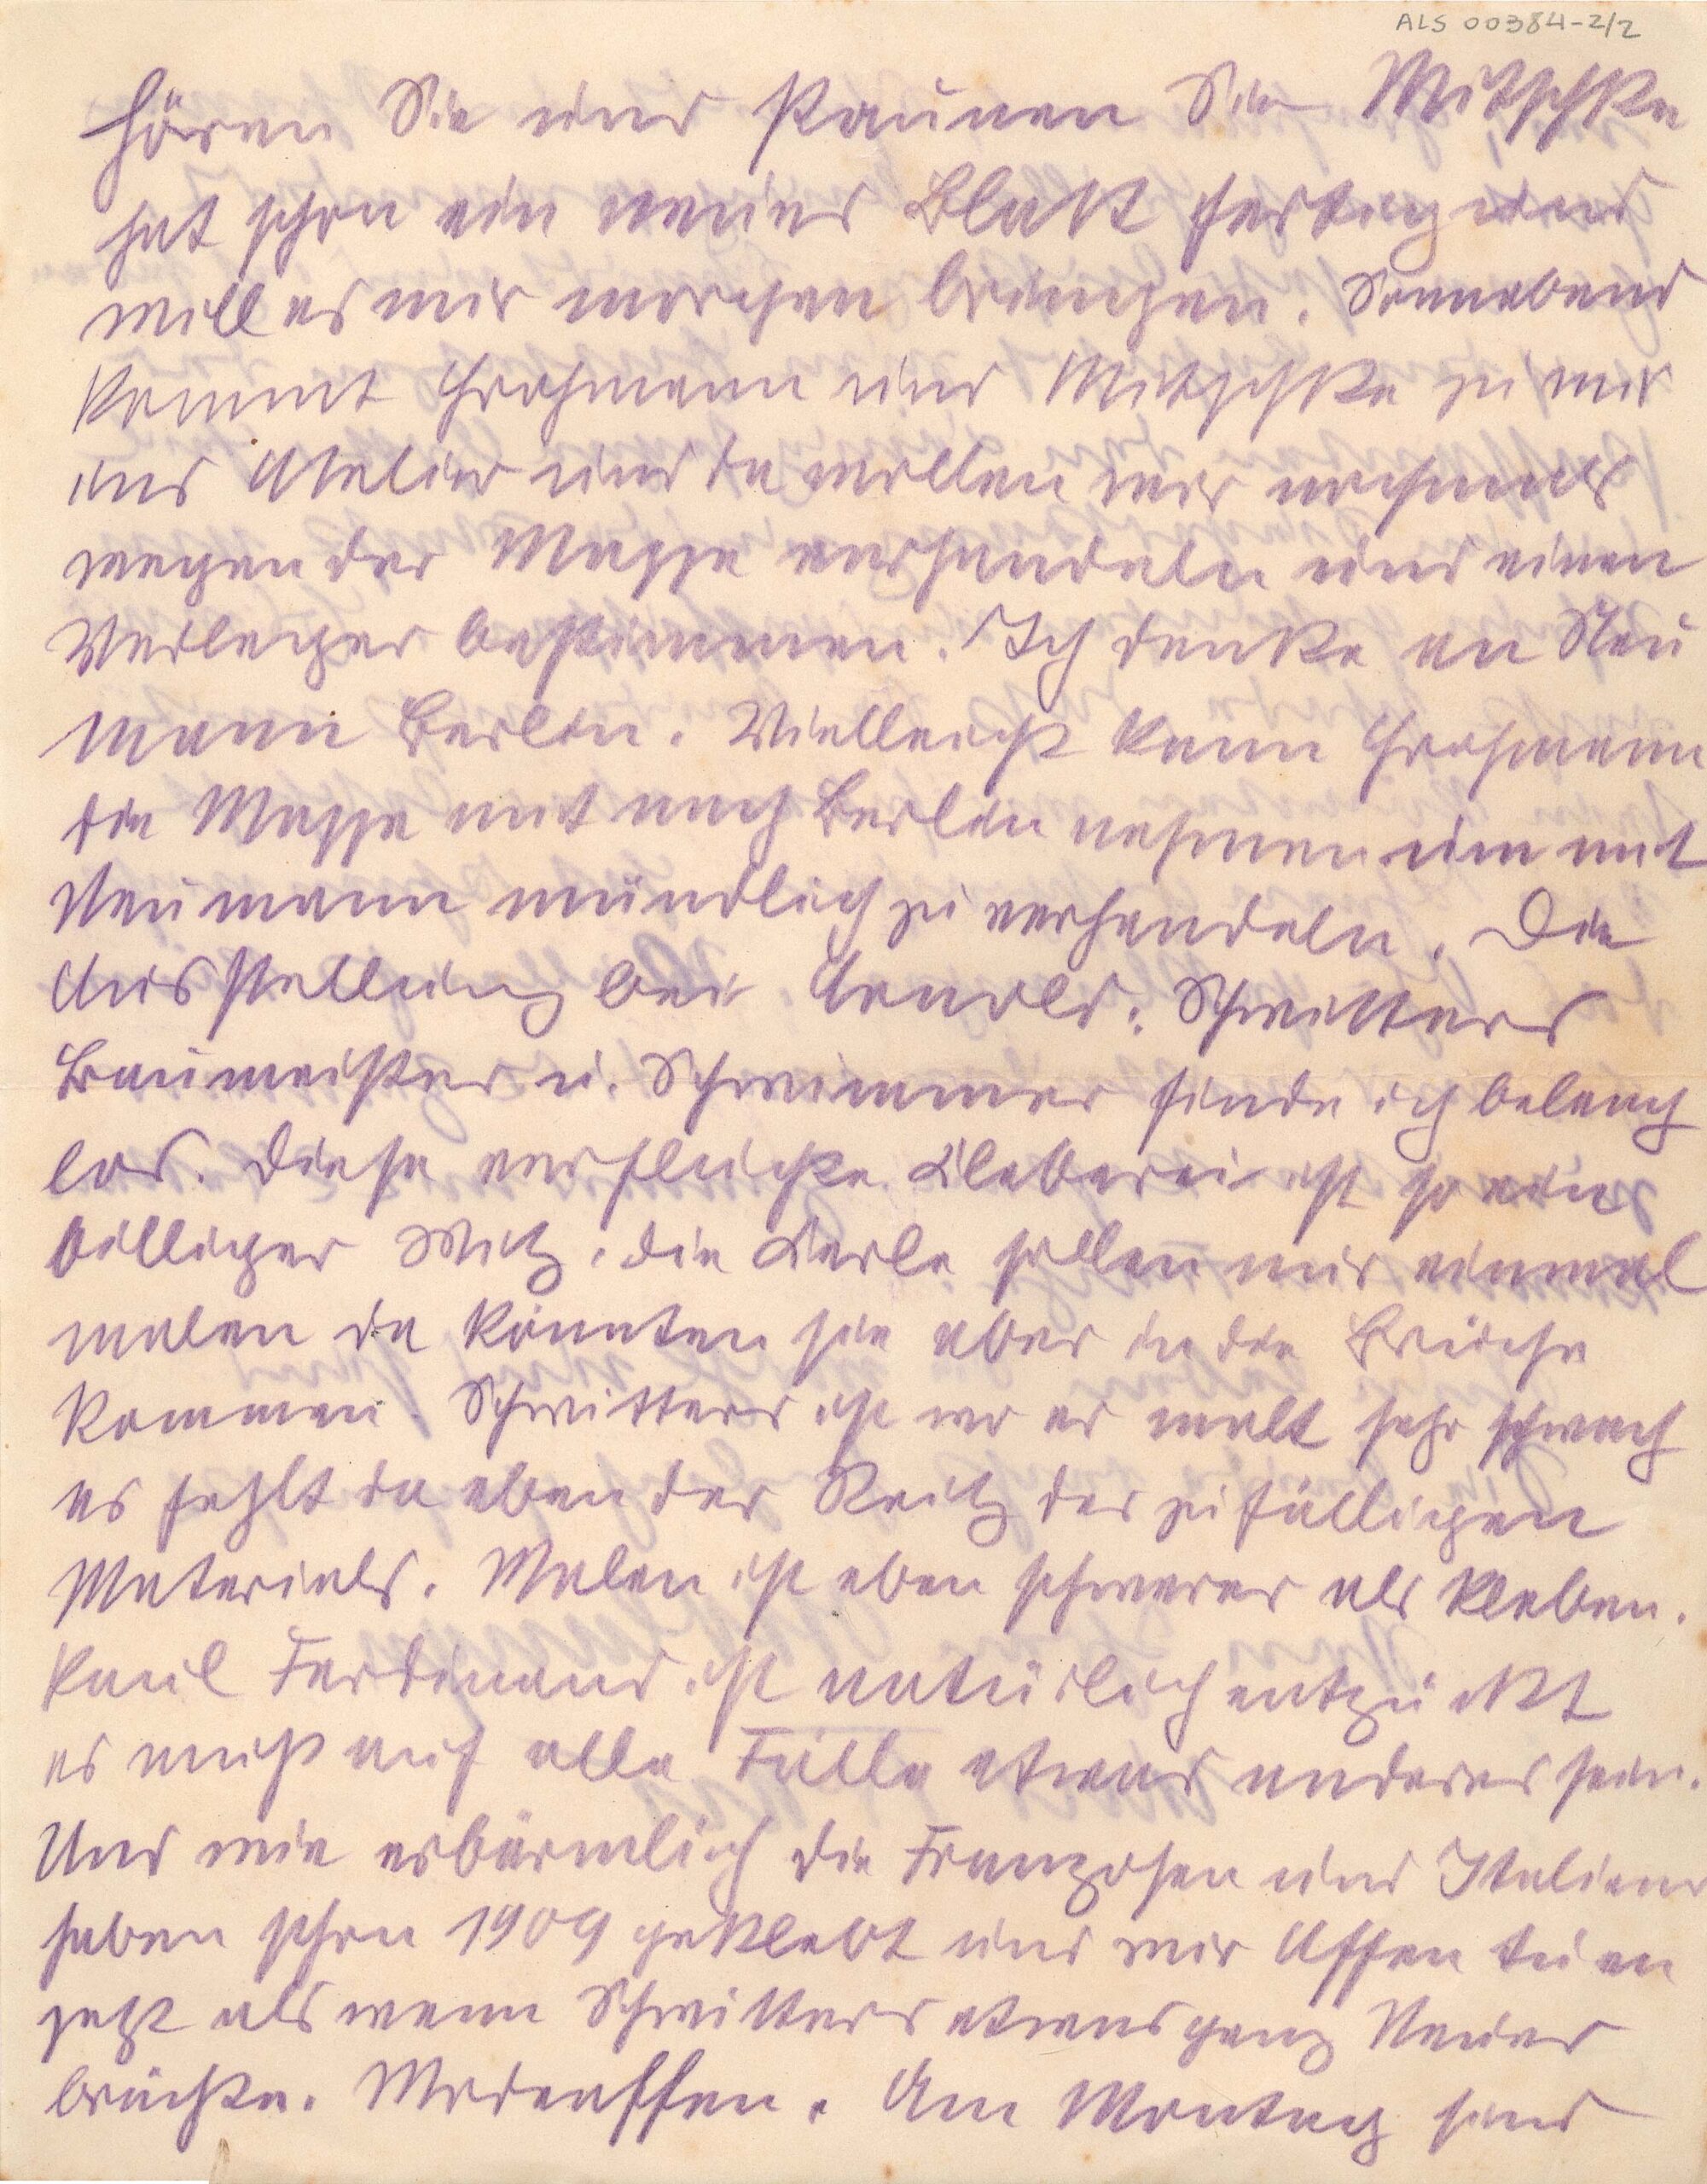 ALS 00384-2/2
Hören Sie und staunen Sie Mitschke
hat schon ein neues Blatt fertig und
will es mir morgen bringen. Sonnabend
kommt Grohmann und Mitschke zu mir
ins Atelier und da wollen wir nochmals
wegen der Mappe verhandeln und einen
Verleger bestimmen. Ich denke an Neu
mann Berlin. Vielleicht kann Grohmann
die Mappe mit nach Berlin nehmen um mit
Neumann mündlich zu verhandeln. Die
Ausstellung bei Arnold: Schwitters
Baumeister u. Schwimmer finde ich belang
los. Diese verfluchte Kleberei ist so ein
billiger Witz, die Kerle sollen mir einmal
malen da könnten sie aber in die Brüche
kommen. Schwitters ist wo er malt sehr schwach
es fehlt da eben der Reitz des zufälligen
Materials. Malen ist eben schwerer als kleben.
Paul Ferdinand ist natürlich entzückt
es muß auf alle Fälle etwas anderes sein.
Und wie erbärmlich die Franzosen und Italiener
haben schon 1909 geklebt und wir Affen tuen
jetzt als wenn Schwitters etwas ganz Neues
brächte. Modeaffen. Am Montag sind